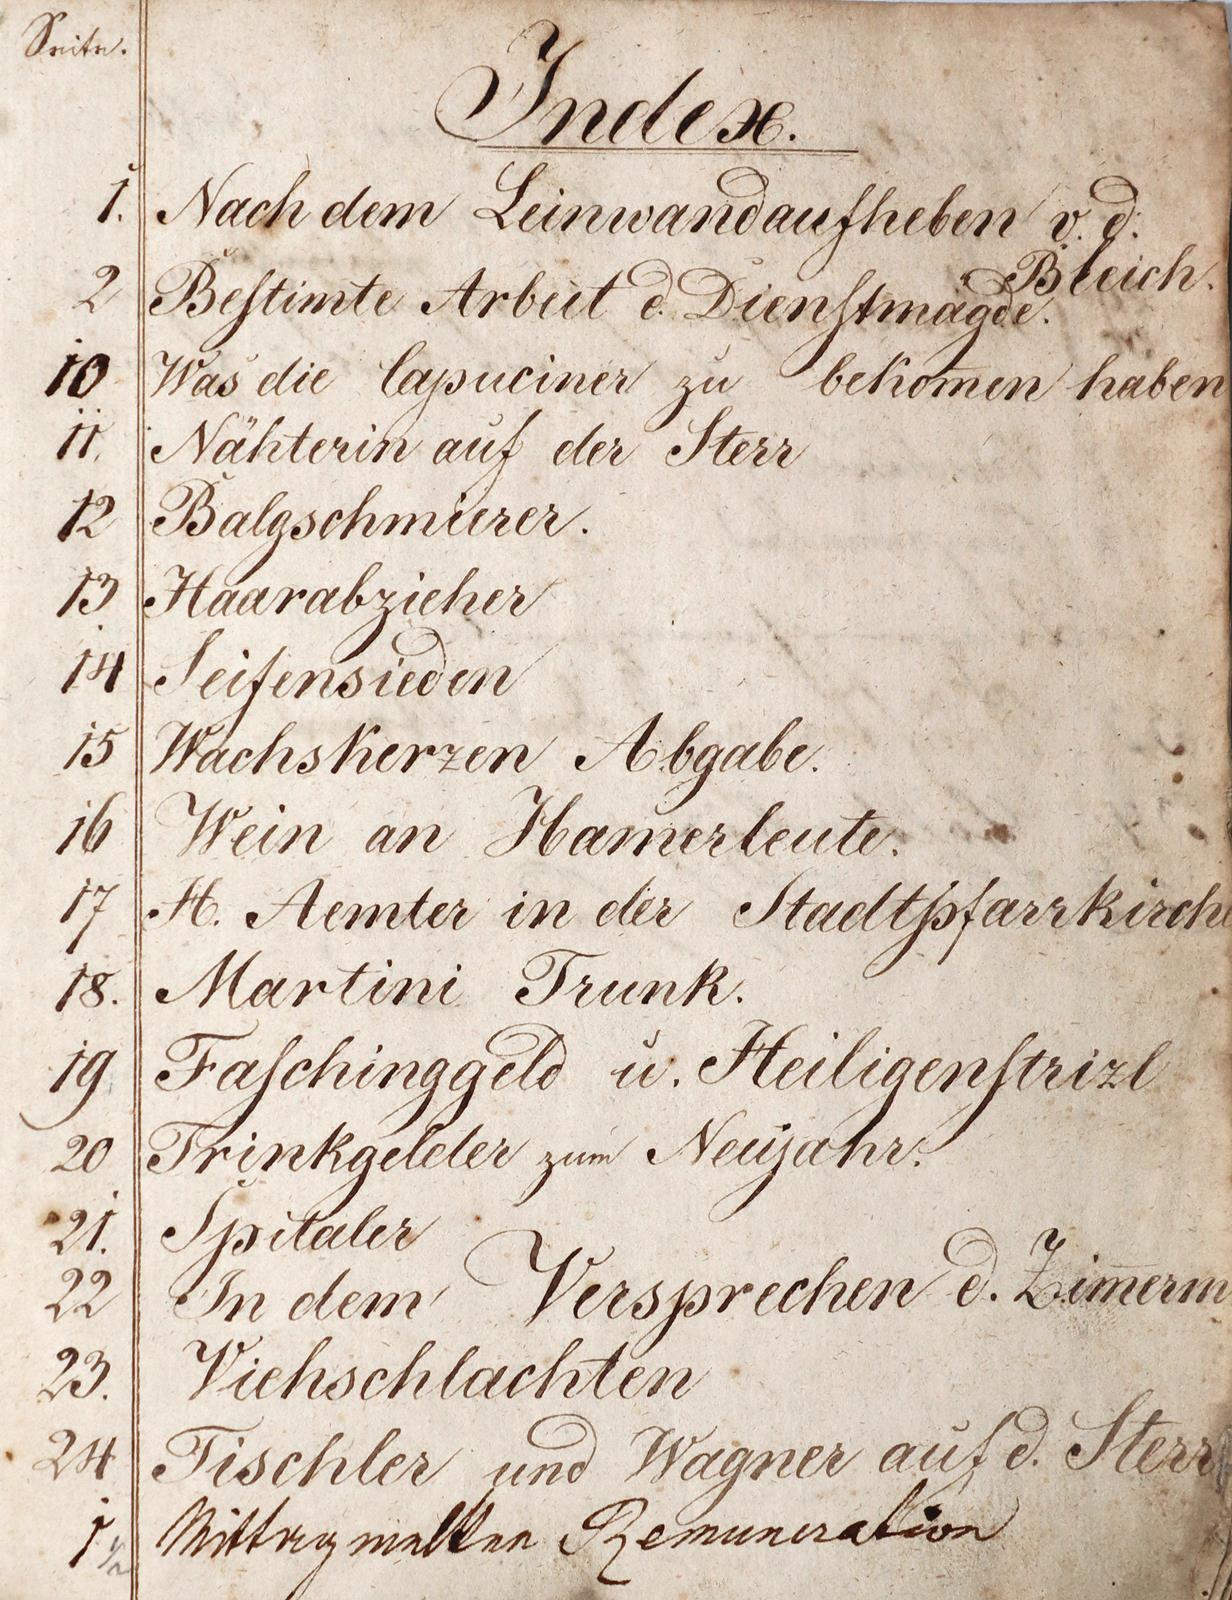 Seite.
Index.
1. Nach dem Leinwandaufheben v. d.
Bleich.
2 Beſtim̅te Arbeit d. Dienſtmägde.
10 Was die Capuciner zu bekom̅en haben
11. Nähterin auf der Sterr
12 Balgschmierer.
13 Haarabzieher
14 Seifensieden
15 Wachskerzen Abgabe.
16 Wein an Ham̅erleute.
17 H. Aemter in der Stadtpfarrkirch
18. Martini Trunk.
19 Faſchinggeld u. Heiligenſtrizl
20 Trinkgelder zum Neujahr.
21. Spitaler
22 In dem Versprechen d. Zim̅erm
23. Viehschlachten
24 Tischler und Wagner auf d. Sterr
1 1/2 Mittagmelken Remuneration